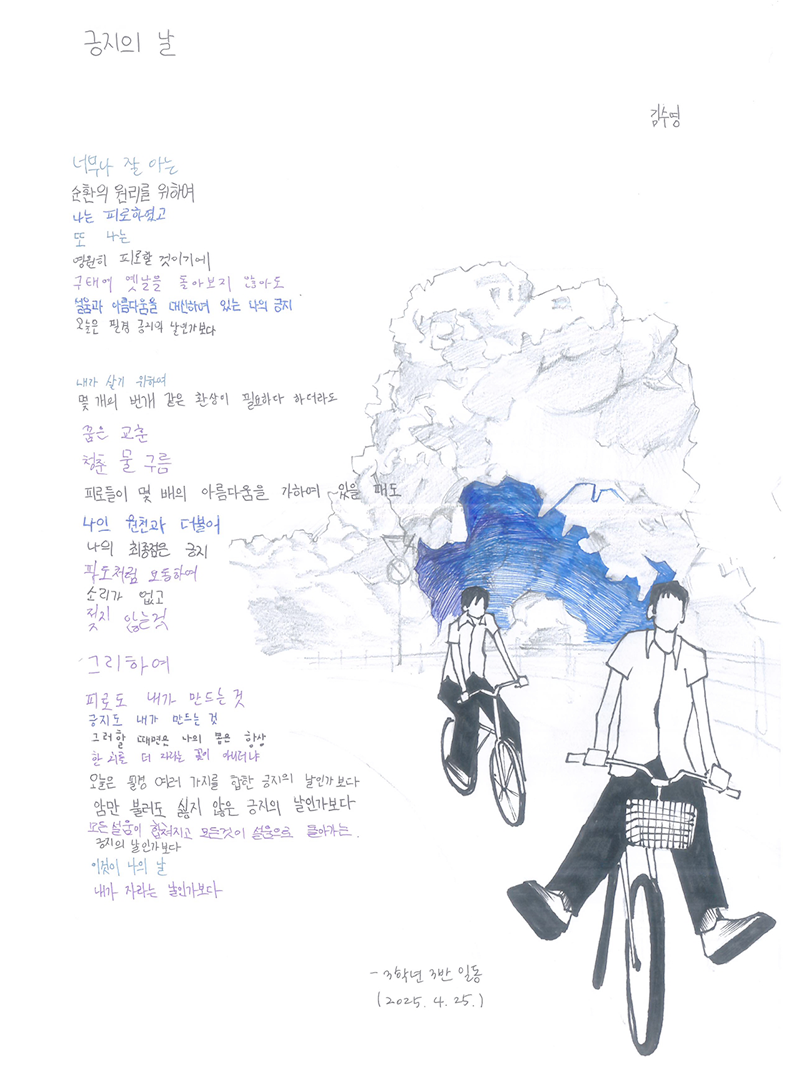 긍지의 날
김수영
너무나 잘 아는
순환의 원리를 위하여
나는 피로하였고
또 나는
영원히 피로할 것이기에
구태여 옛날을 돌아보지 않아도
설움과 아름다움을 대신하여 있는 나의 긍지
오늘은 필경 긍지의 날인가보다
내가 살기 위하여
몇 개의 번개 같은 환상이 필요하다 하더라도
꿈은 교훈
청춘 물 구름
피로들이 몇 배의 아름다움을 가하여 있을 때도
나의 원천과 더불어
나의 최종점은 긍지
파도처럼 요동하여
소리가 없고
젖지 않는것
그리하여
피로도 내가 만드는 것
긍지도 내가 만드는 것
그러할 때면은 나의 몸은 항상
한 치를 더 자라는 꽃이 아니더냐
오늘은 필경 여러 가지를 합한 긍지의 날인가보다
암만 불러도 싫지 않은 긍지의 날인가보다
모든 설움이 합쳐지고 모든것이 설움으로 돌아가는
긍지의 날인가보다
이것이 나의 날
내가 자라는 날인가보다
- 3학년 3반 일동
(2025. 4. 25.)